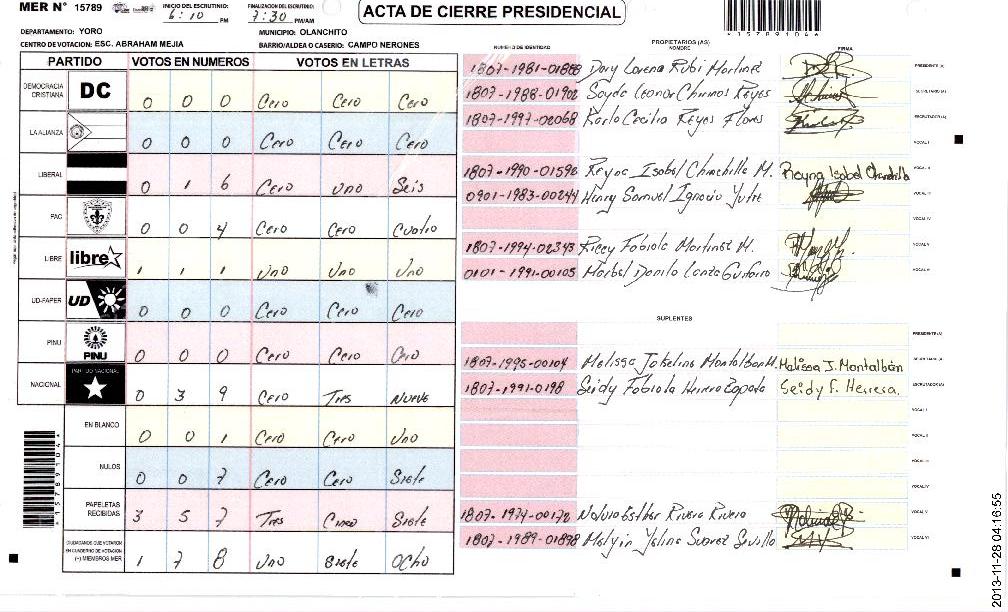 MER N° 15789
INICIO DEL ESCRUTINIO: 6:10 PM
FINALIZACION DEL ESCRUTINIO: 7:30 PM/AM
ACTA DE CIERRE PRESIDENCIAL
*15789104*
DEPARTAMENTO: YORO
MUNICIPIO: OLANCHITO
CENTRO DE VOTACION: ESC. ABRAHAM MEJIA
BARRIO/ALDEA O CASERIO: CAMPO NERONES
PARTIDO VOTOS EN NUMEROS VOTOS EN LETRAS
DEMOCRACIA CRISTIANA DC 0 0 0 Cero Cero Cero
LA ALIANZA 0 0 0 Cero Cero Cero
LIBERAL 0 1 6 Cero Uno Seis
PAC 0 0 4 Cero Cero Cuatro
LIBRE libre 1 1 1 Uno Uno Uno
UD-FAPER UD 0 0 0 Cero Cero Cero
PINU PINU 0 0 0 Cero Cero Cero
NACIONAL PARTIDO NACIONAL 0 3 9 Cero Tres Nueve
EN BLANCO 0 0 1 Cero Cero Uno
NULOS 0 0 7 Cero Cero Siete
PAPELETAS RECIBIDAS 3 5 7 Tres Cinco Siete
CIUDADANOS QUE VOTARON EN CUADERNO DE VOTACION (+) MIEMBROS MER 1 7 8 Uno Siete Ocho
*15789104*
NUMERO DE IDENTIDAD PROPIETARIOS (AS) NOMBRE FIRMA
1807-1981-01888 Dory Lorena Rubi Martinez PRESIDENTE (A)
1807-1988-01902 Sayda Leonor Chirinos Reyes SECRETARIO (A)
1807-1997-02068 Karla Cecilia Reyes Flores ESCRUTADOR (A)
VOCAL I
1807-1990-01598 Reyna Isabel Chinchilla M. Reyna Isabel Chinchilla VOCAL II
0901-1983-00244 Henry Samuel Ignacio VOCAL III
VOCAL IV
1807-1994-02343 Fabiola Martinez M. VOCAL V
0101-1991-00105 Danilo VOCAL VI
SUPLENTES
PRESIDENTE (A)
1807-1995-00104 Melissa Jakelina Montalban M. Melissa J. Montalbán SECRETARIO (A)
1807-1991-0198 Seidy Fabiola Herrera Zapata Seidy F. Herrera. ESCRUTADOR (A)
VOCAL I
VOCAL II
VOCAL III
VOCAL IV
1807-1974-00172 Rivera Rivera VOCAL V
1807-1989-01898 Suarez VOCAL VI
2013-11-28 04:16:55